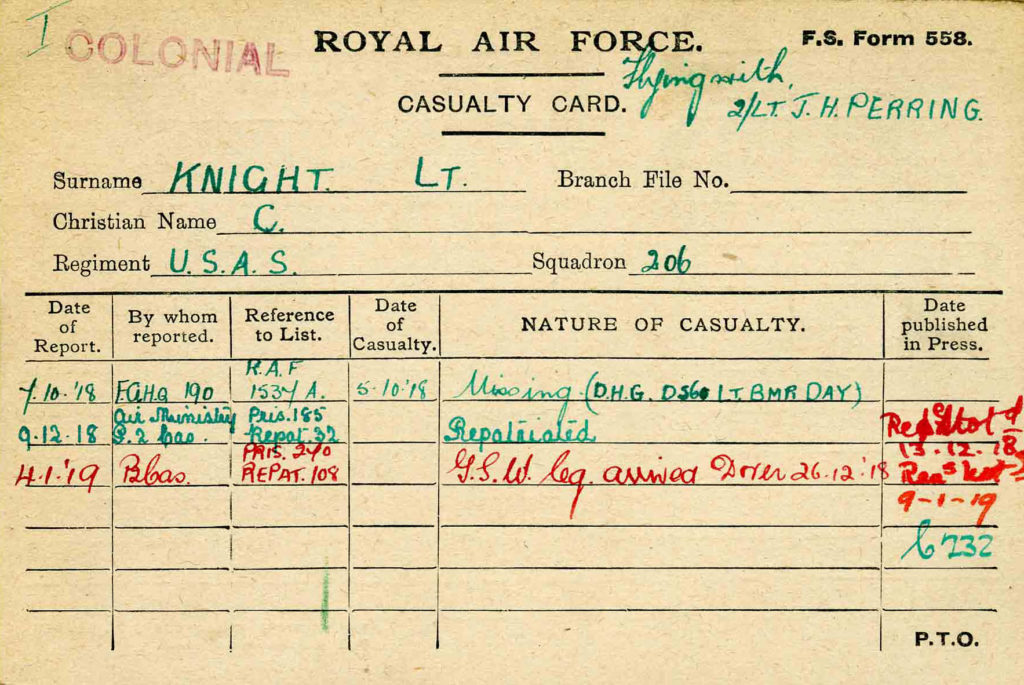 I
COLONIAL
ROYAL AIR FORCE.
F.S. Form 558.
Flying with,
2/LT. J. H. PERRING.
CASUALTY CARD.
Surname KNIGHT. LT. Branch File No.
Christian Name C.
Regiment U.S.A.S. Squadron 206
Date of Report. By whom reported. Reference to List. Date of Casualty. NATURE OF CASUALTY. Date published in Press.
R.A.F
7.10.'18 190 1537 A. 5.10.'18 Missing (D.H.9. D560 LT. BMR DAY)
Air Ministry Pris. 185
9.12.18 P.2 Cas. Repat. 32 Repatriated
13.12.18
PRIS. 240
4.1.'19 P2Cas. REPAT. 108 G.S.W. leg. arrived Dover 26.12.'18
9-1-19
6732
P.T.O.